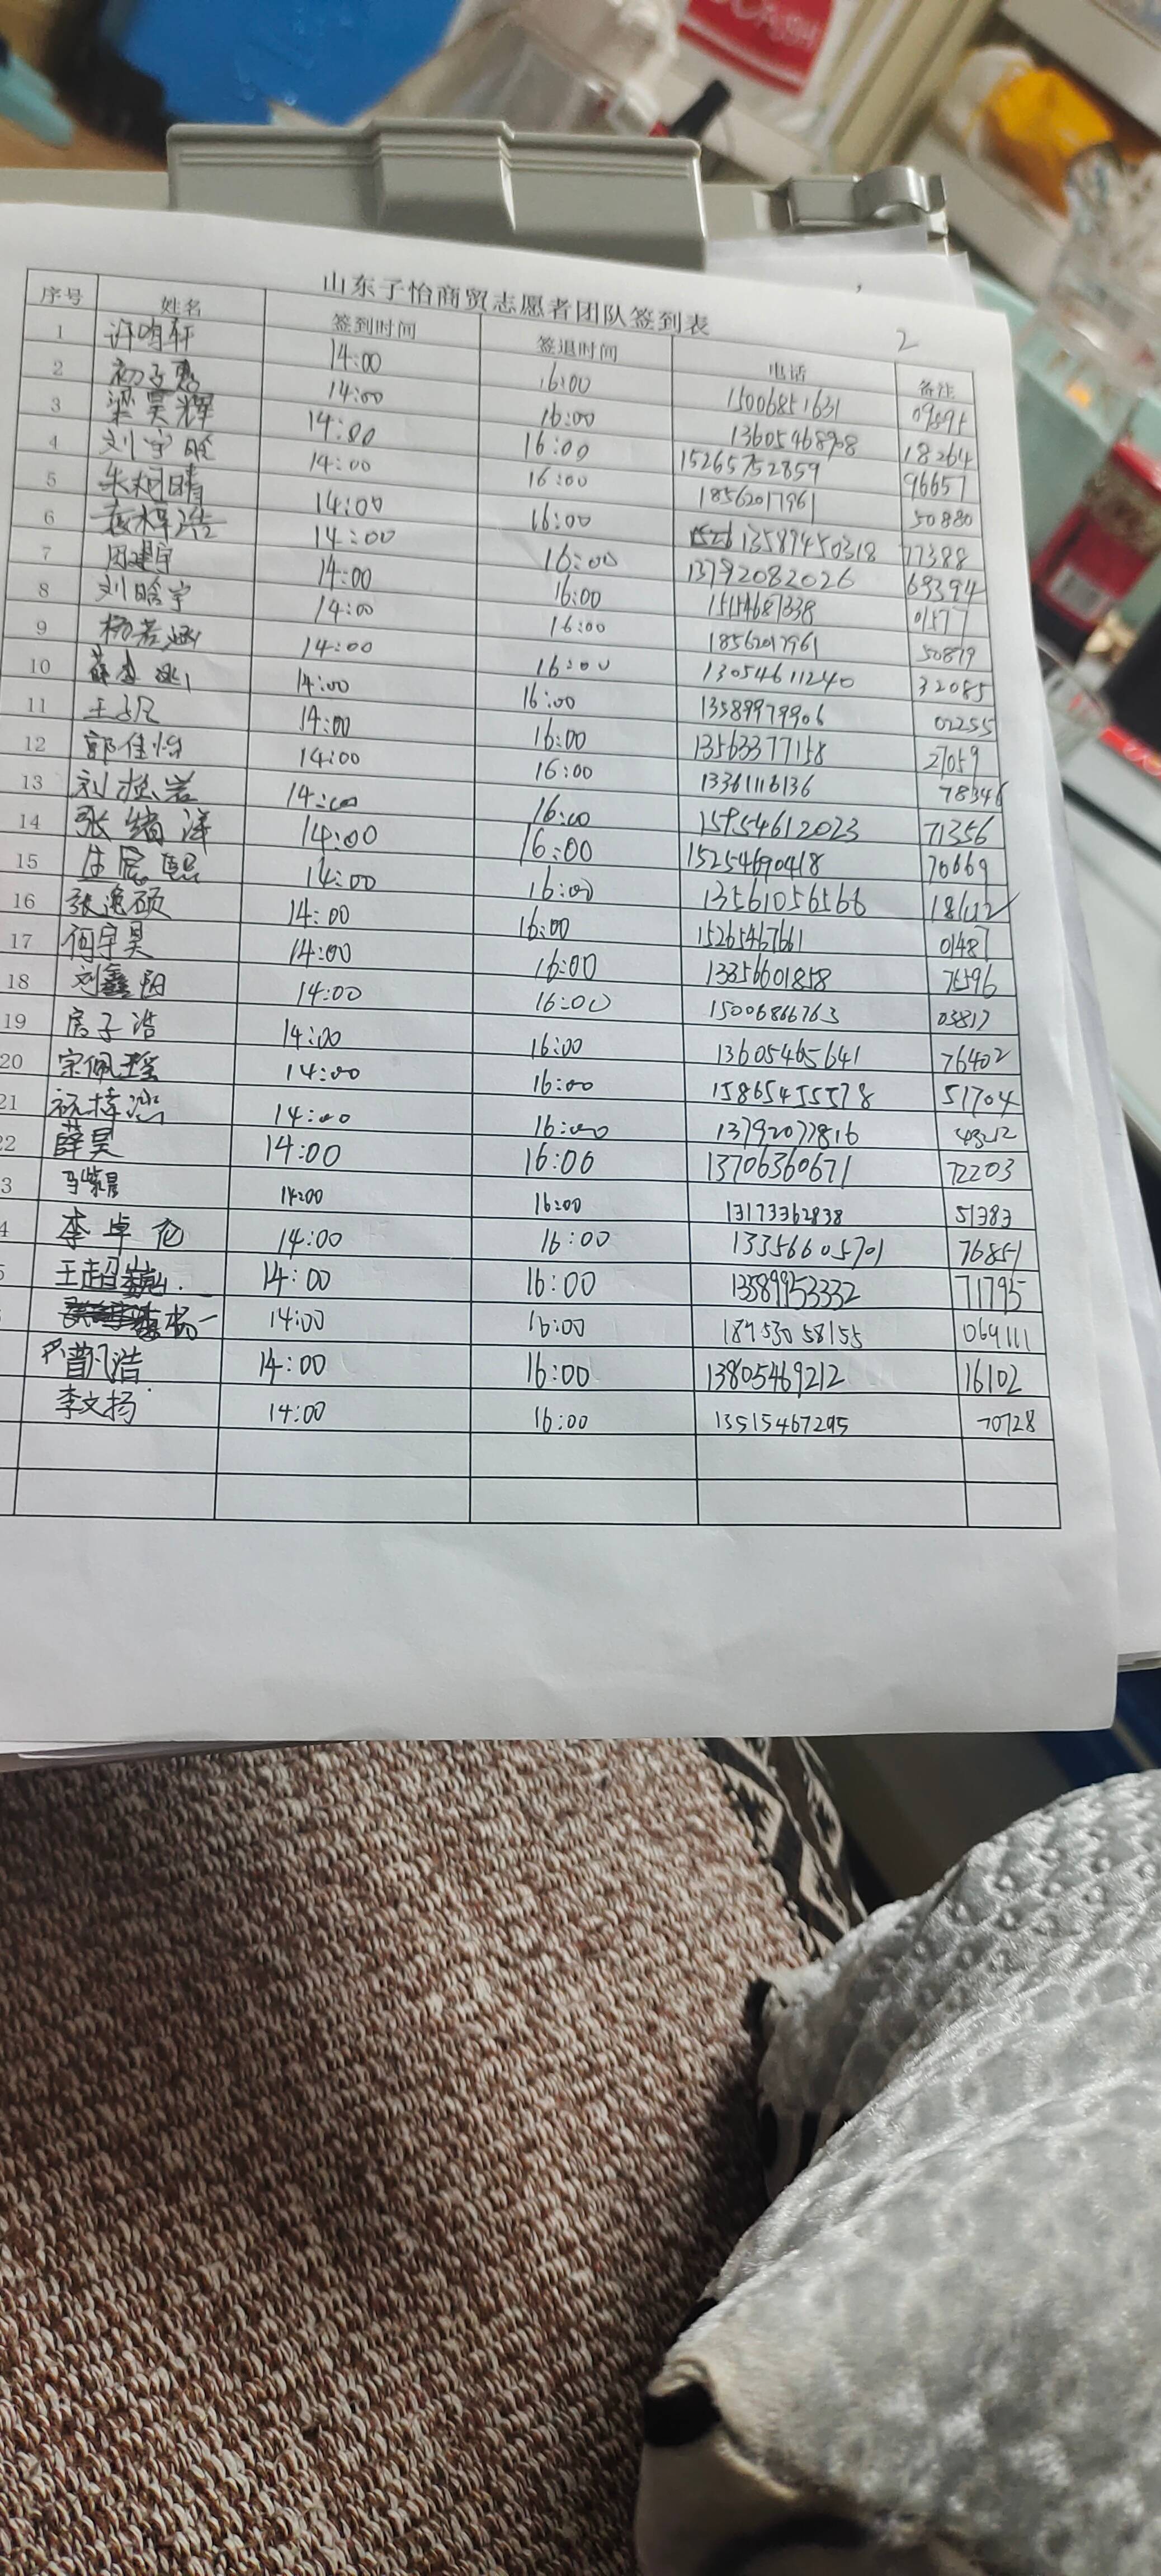 山东子怡商贸志愿者团队签到表
2
序号 姓名 签到时间 签退时间 电话 备注
1 许明轩 14:00 16:00 15006851631
2 初子惠 14:00 16:00 13605468908 18264
3 梁昊辉 14:00 16:00 15265752859 96657
4 刘宇晗 14:00 16:00 18562017961 50880
5 14:00 16:00 13589450318 77388
6 14:00 16:00 13792082026 69394
7 周建宇 14:00 16:00 15154687338 01577
8 刘晗宇 14:00 16:00 18562017961 50879
9 杨若涵 14:00 16:00 13054611240 32085
10 14:00 16:00 13589979906 02255
11 14:00 16:00 13563377158 27059
12 郭佳怡 14:00 16:00 13361116136 78346
13 刘桓岩 14:00 16:00 15954612023 71356
14 张绪洋 14:00 16:00 15254690418 70669
15 14:00 16:00 13561056566
16 张逸硕 14:00 16:00 15265467661 01487
17 何宇昊 14:00 16:00 13356601858 76596
18 刘鑫阳 14:00 16:00 15006866763 03817
19 房子浩 14:00 16:00 13605465641 76402
20 宗佩瑶 14:00 16:00 15865455578 57704
21 14:00 16:00 13792077816
22 薛昊 14:00 16:00 13706360671 72203
3 马紫晨 14:00 16:00 13173362838 51383
4 李卓伦 14:00 16:00 13356605701 76851
5 王超巍 14:00 16:00 13589953332 71795
14:00 16:00 18953058155 069111
曹凡浩 14:00 16:00 13805469212 16102
李文扬 14:00 16:00 13515467295 70728